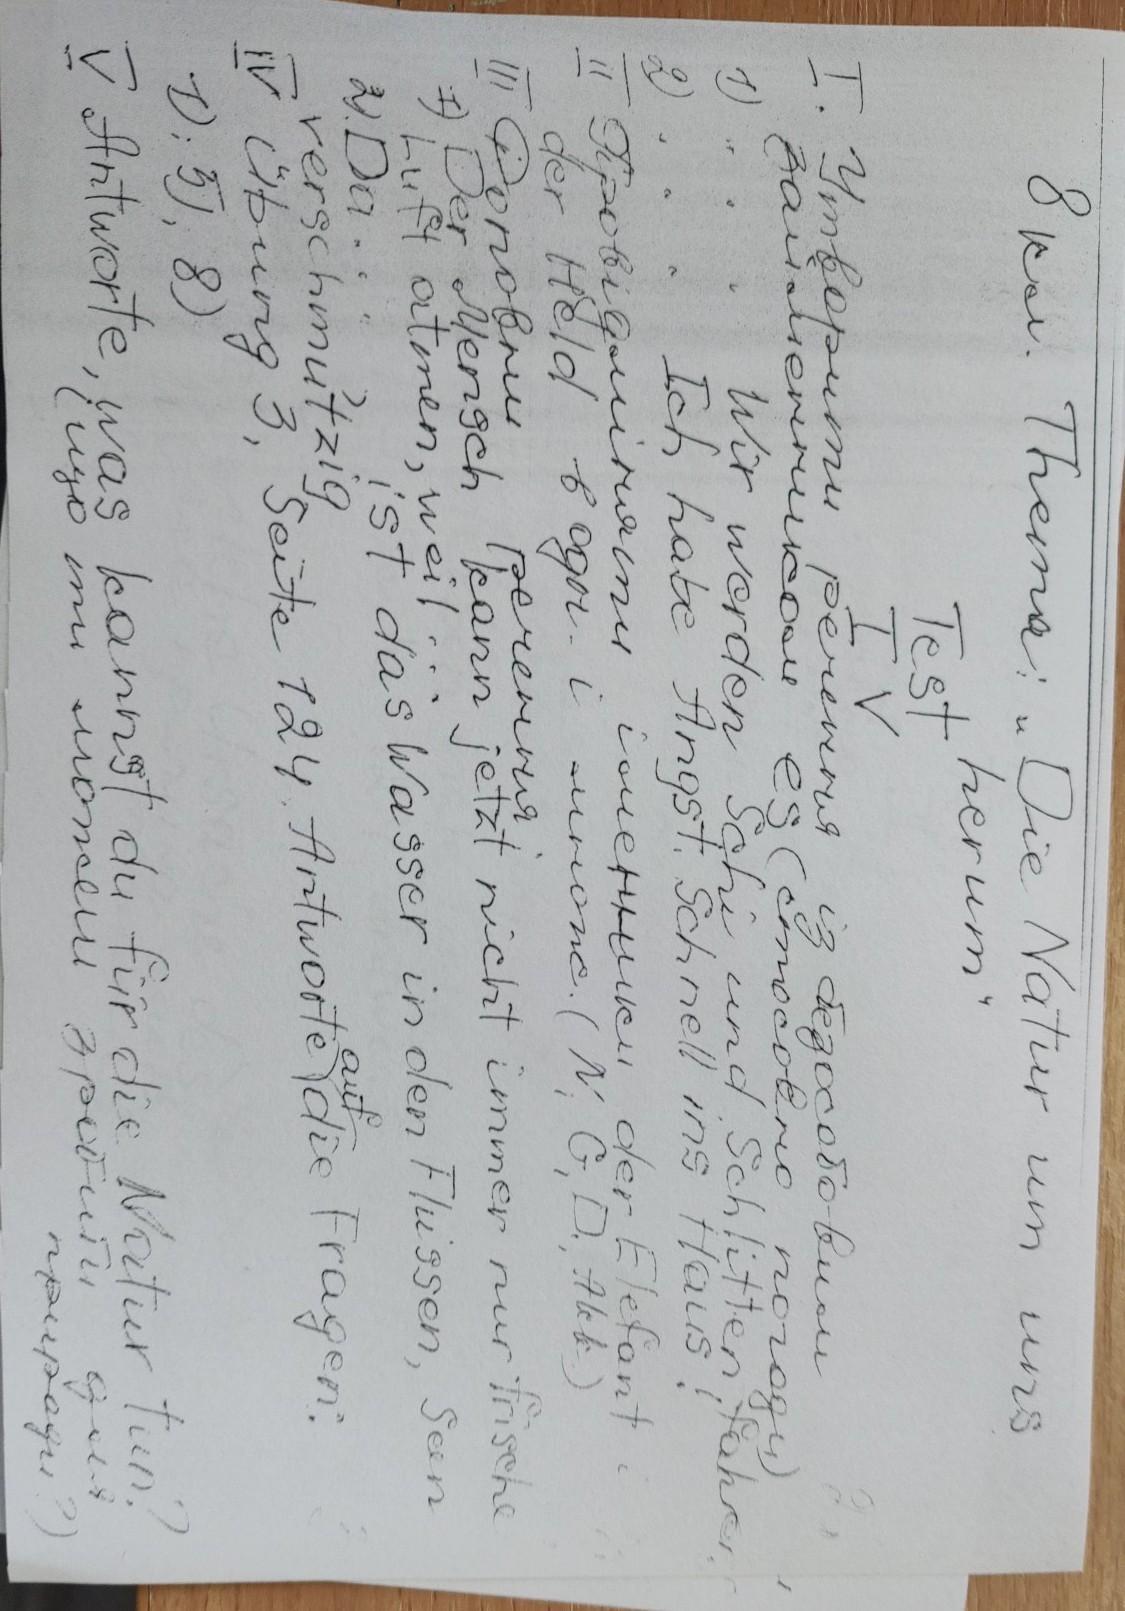 8 кл. Thema: „Die Natur um uns
herum"
Test
I V
I. Утворити речення із безособовим
займенником es (стосовно погоди)
1) . . . . Wir werden Schi und Schlitten fahren.
2) . . . Ich habe Angst. Schnell ins Haus!
II Провідмініняти іменники der Elefant i
der Held в одн. і множ. (N, G, D, Akk)
III Доповни речення
1) Der Mensch kann jetzt nicht immer nur frische
Luft atmen, weil . . .
2). Da . . . ist das Wasser in den Flüssen, Seen
verschmutzig
IV Übung 3, Seite 124. Antworte) auf die Fragen:
1); 5), 8)
V Antworte, was kannst du für die Natur tun?
(що ти можеш зробити для
природи?)